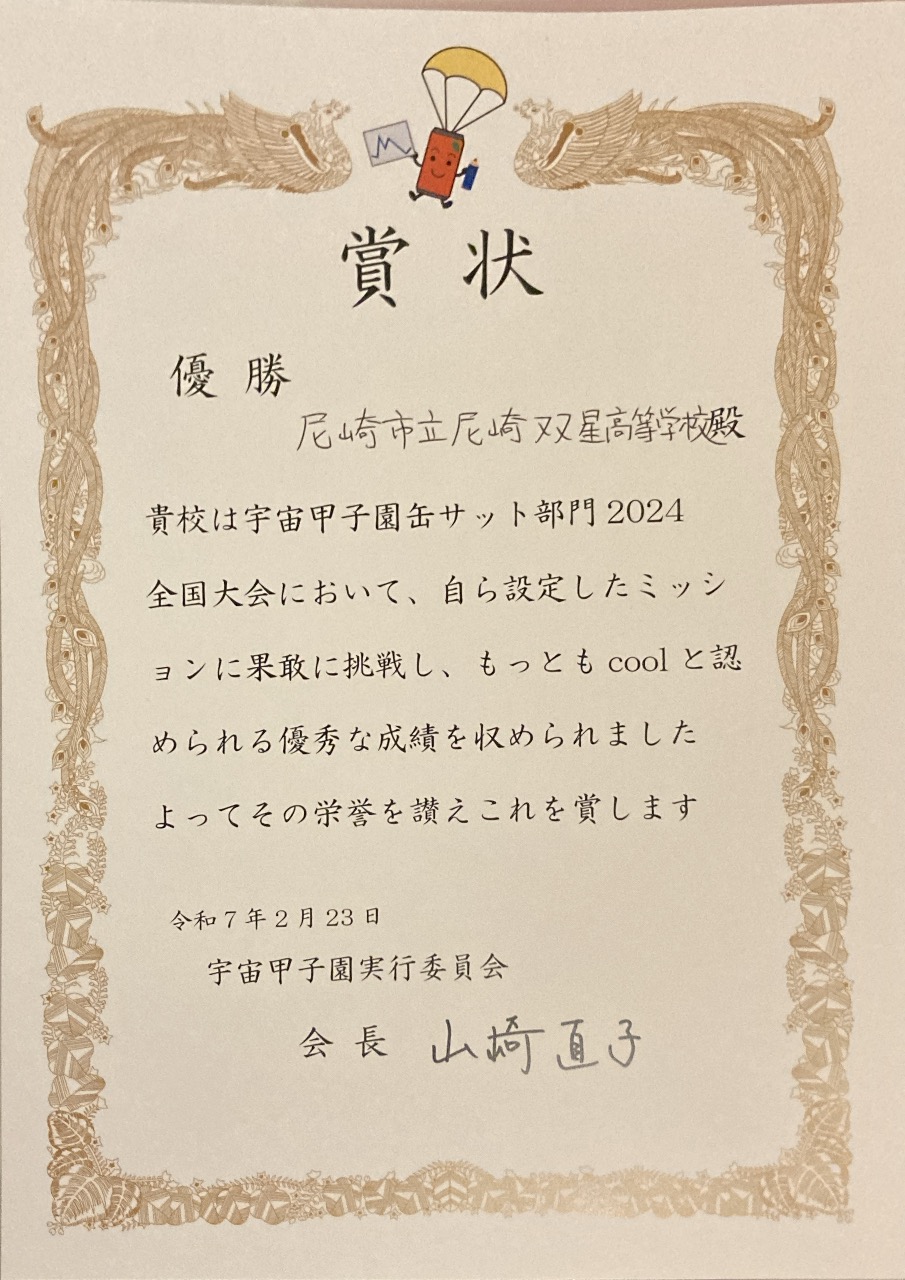 賞状
優勝
尼崎市立尼崎双星高等学校殿
貴校は宇宙甲子園缶サット部門2024
全国大会において、自ら設定したミッシ
ョンに果敢に挑戦し、もっともcoolと認
められる優秀な成績を収められました
よってその栄誉を讃えこれを賞します
令和7年2月23日
宇宙甲子園実行委員会
会長 山崎直子